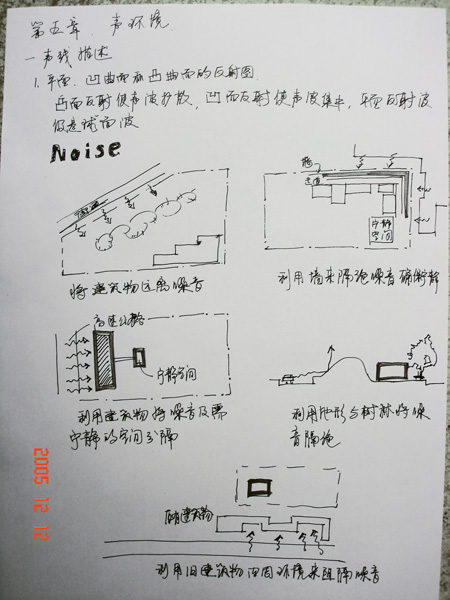 第五章. 声环境
一声线描述
1. 平面、凹曲面和凸曲面的反射图
凸面反射使声波扩散, 凹面反射使声波集中, 平面反射波
仍是球面波
Noise
将建筑物远离噪音
墙
走道
宁静
空间
利用墙来隔绝噪音
高速公路
宁静空间
利用建筑物将噪音及需
宁静的空间分隔
利用地形与树林将噪
音隔绝
建筑物
利用旧建筑物四周环境来阻隔噪音
2005 12 12